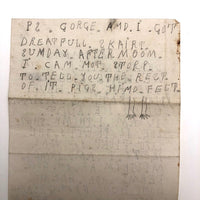 PS. GORGE. AMD. I. GOT
DREATFULL SKAIRT
SUMDAY. AFTERMOOM.
I CAM MOT STOPP.
TO TELL YOU THE REST
OF IT PIGS HIMD FEET